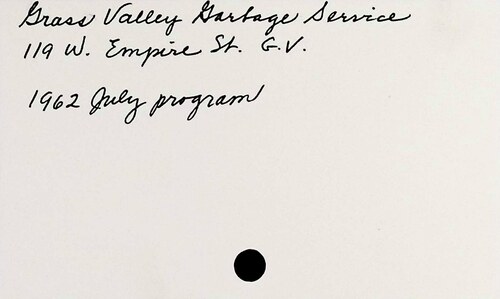 Grass Valley Garbage Service
119 W. Empire St. G.V.
1962 July program